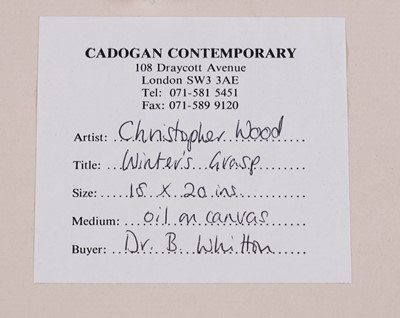 CADOGAN CONTEMPORARY
108 Draycott Avenue
London SW3 3AE
Tel: 071-581 5451
Fax: 071-589 9120
Artist: Christopher Wood
Title: Winter's Grasp
Size: 18 x 20 ins.
Medium: oil on canvas
Buyer: Dr. B. Whitton